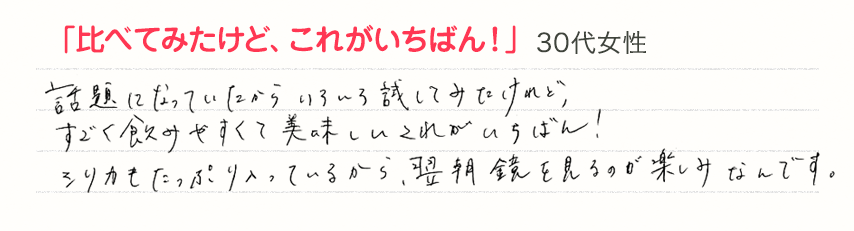 「比べてみたけど、これがいちばん！」 30代女性
話題になっていたからいろいろ試してみたけれど、
すごく飲みやすくて美味しいこれがいちばん！
シリカもたっぷり入っているから、翌朝鏡を見るのが楽しみなんです。